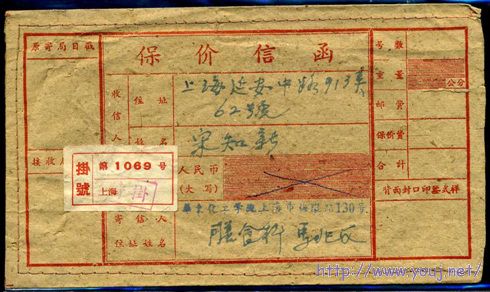 原寄局日戳
保价信函
号数
重量
公分
邮费
保价费
合计
背面封口印签式样
收信人
住址
上海延安中路913弄
62號
姓名
宋知新
接收局
掛號
第 1069 号
上海
掛
人民币
(大写)
寄信
住址姓名
華東化工学院上海市梅隴路130号
膳食科
http://www.youj.net/